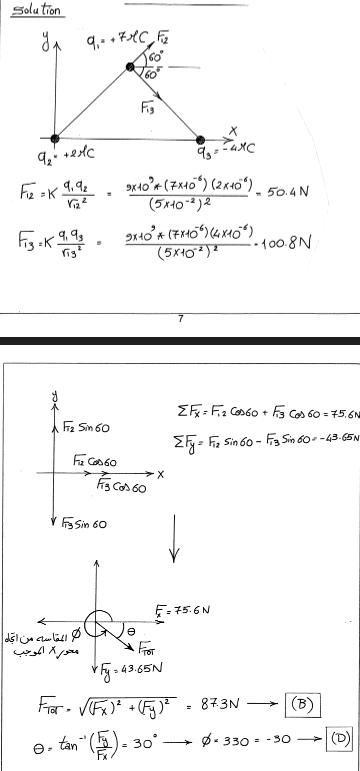 Solution
y
q₁ = +7μC
F₁₂
60°
60°
F₁₃
x
q₂ = +2μC
q₃ = -4μC
F₁₂ = K q₁ q₂ / r₁₂² = 9×10⁹ * (7×10⁻⁶) (2×10⁻⁶) / (5×10⁻²)² = 50.4 N
F₁₃ = K q₁ q₃ / r₁₃² = 9×10⁹ * (7×10⁻⁶) (4×10⁻⁶) / (5×10⁻²)² = 100.8 N
7
y
ΣFx = F₁₂ Cos60 + F₁₃ Cos60 = 75.6N
F₁₂ Sin60
ΣFy = F₁₂ Sin60 - F₁₃ Sin60 = -43.65N
F₁₂ Cos60
x
F₁₃ Cos60
F₁₃ Sin60
Fx = 75.6N
المقاسه من اتجاه Φ
محور x الموجب
θ
FTOT
Fy = 43.65N
FTOT = √(Fx)² + (Fy)² = 87.3N → (B)
θ = tan⁻¹ (Fy/Fx) = 30° → Φ = 330 = -30 → (D)